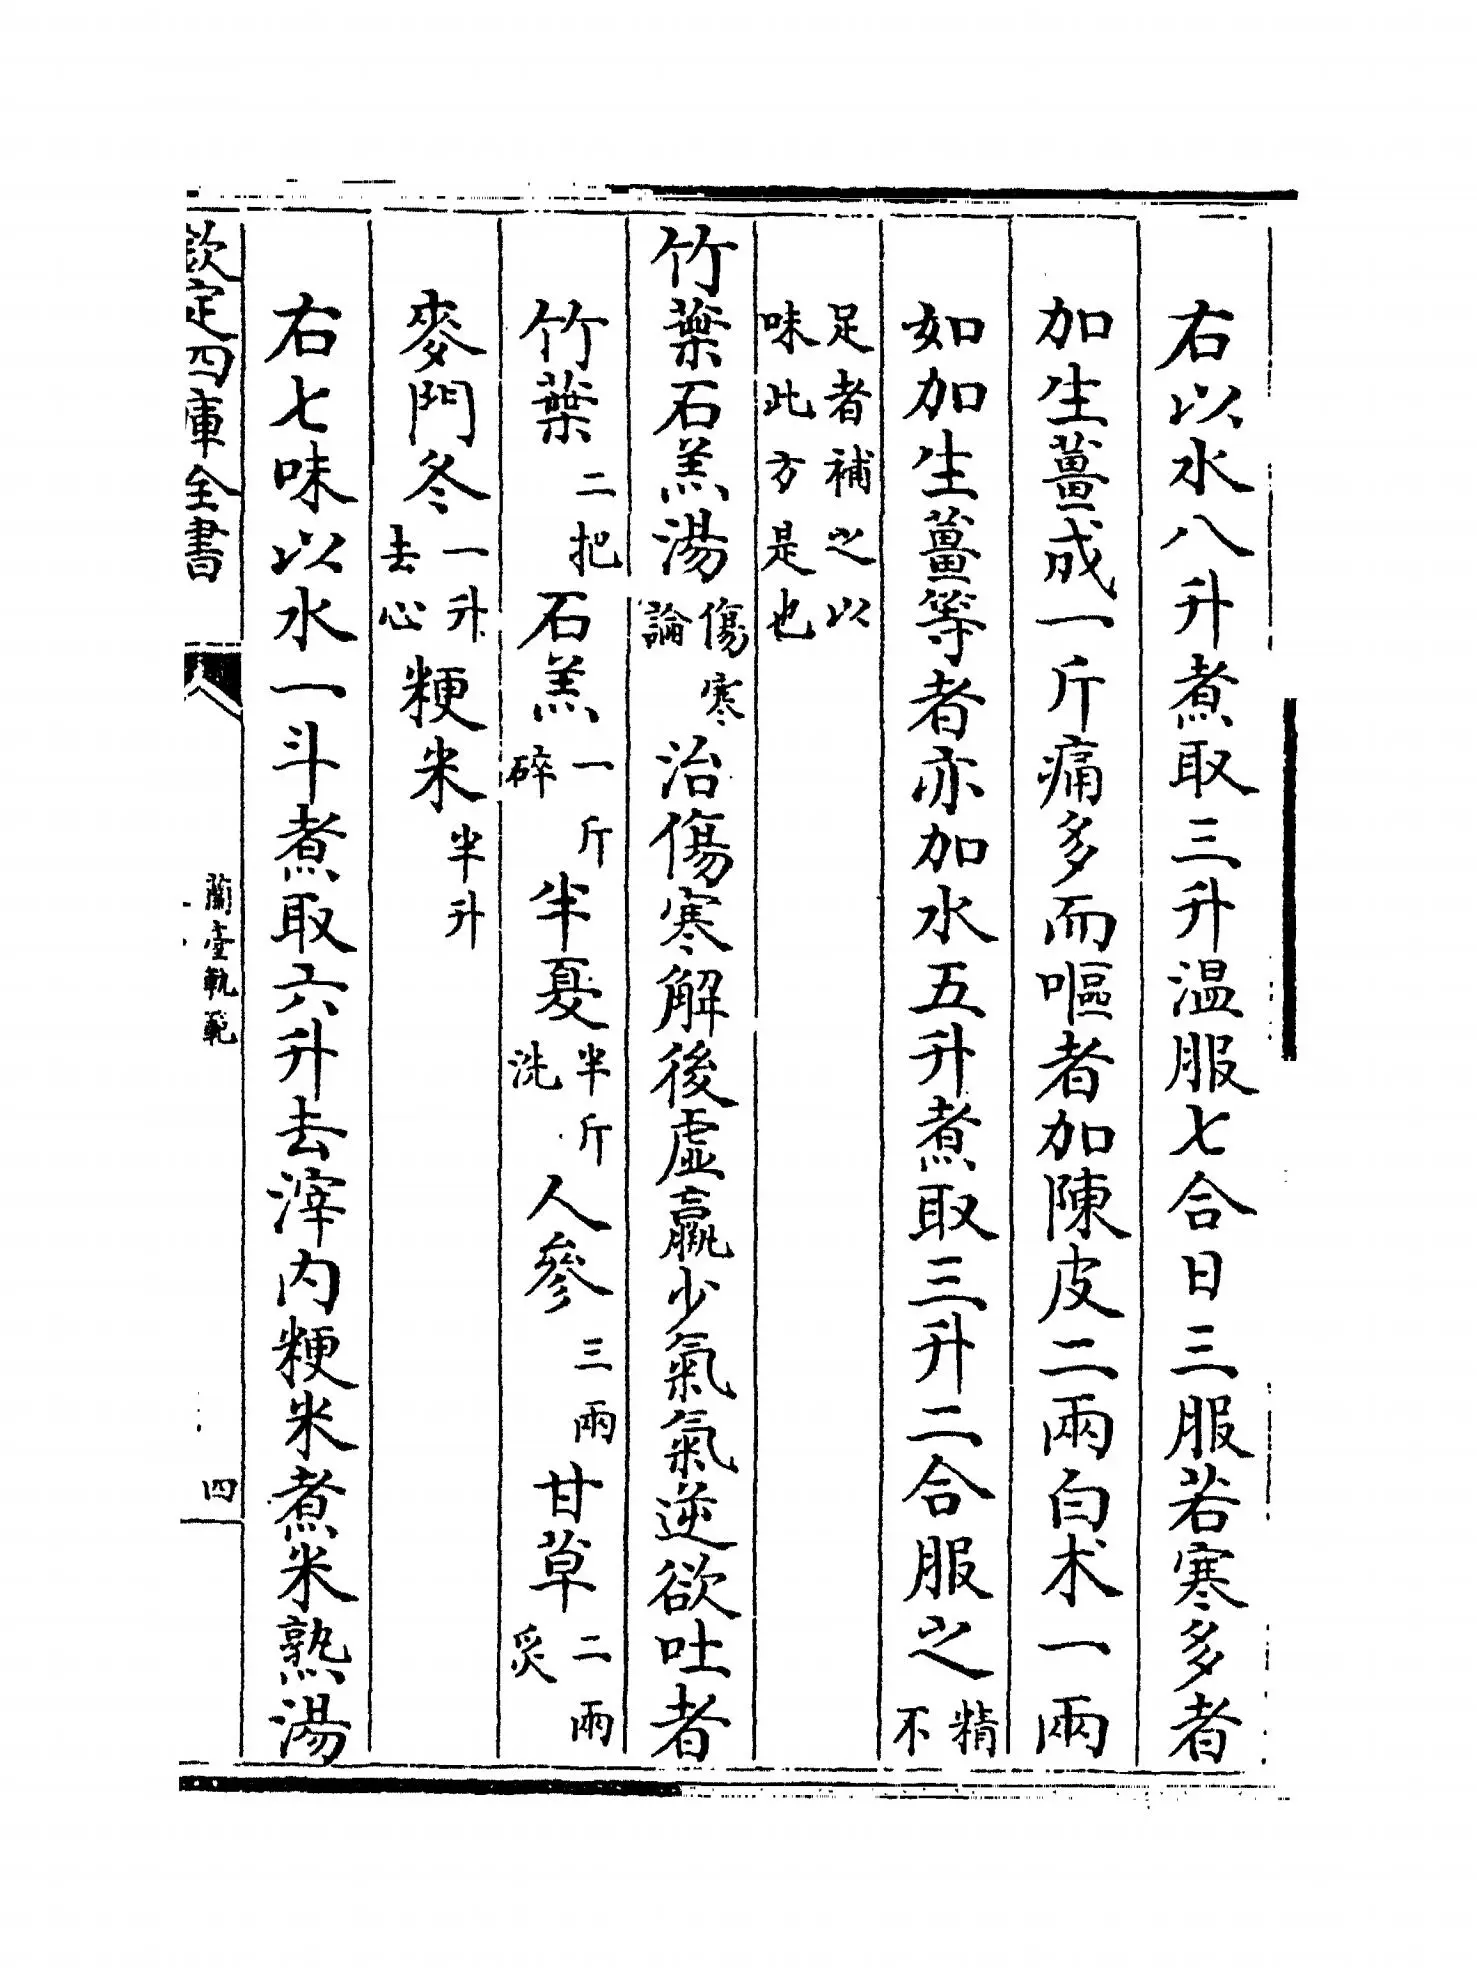 右以水八升煮取三升温服七合日三服若寒多者
加生薑成一斤痛多而嘔者加陳皮二兩白术一兩
如加生薑等者亦加水五升煮取三升二合服之精不
足者補之以
味此方是也
竹葉石羔湯傷寒論治傷寒解後虛羸少氣氣逆欲吐者
竹葉二把石羔一斤碎半夏半斤洗人參三兩甘草二兩炙
麥門冬一升去心粳米半升
右七味以水一斗煮取六升去滓内粳米煮米熟湯
欽定四庫全書
蘭臺軌範
四